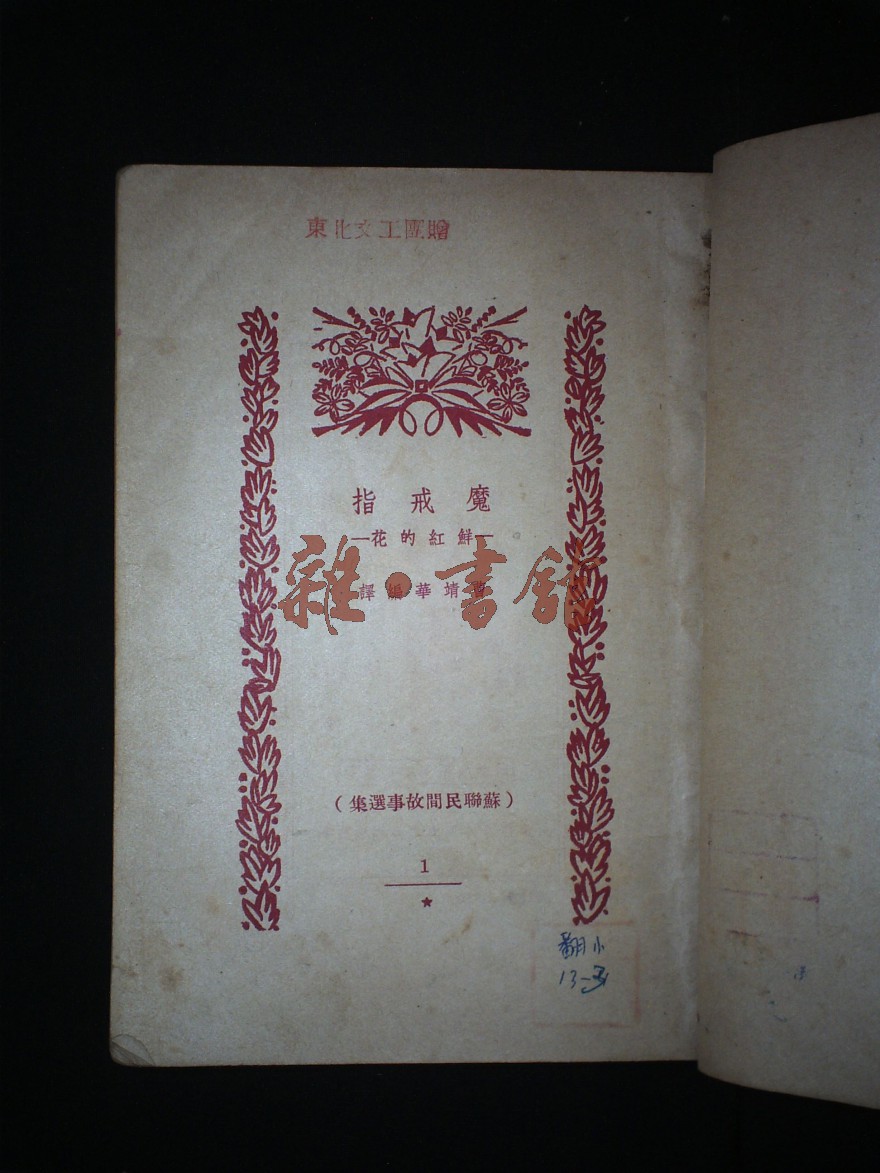 東北文工團贈
魔戒指
—鮮紅的花—
曹靖華編譯
雜·書館
（蘇聯民間故事選集）
1
★
翻小